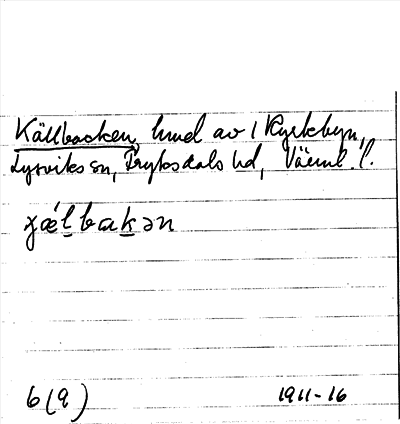 Källbacken, hmd av 1 Kyrkbyn,
Lysviks sn, Fryksdals hd, Värml. l.
χǽlbakən
6(9) 1911-16